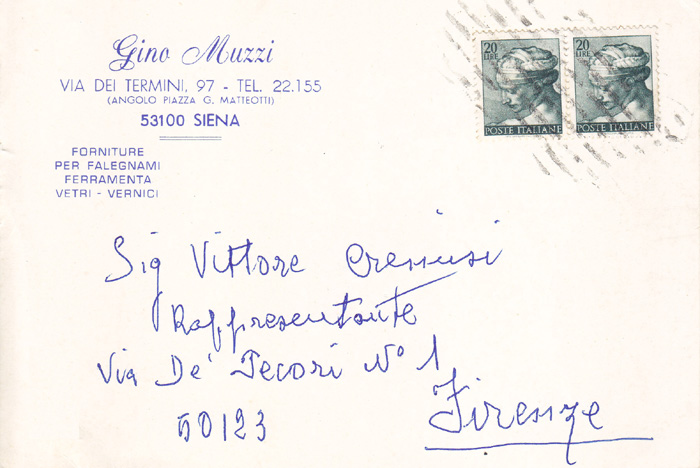 Gino Muzzi
VIA DEI TERMINI, 97 - TEL. 22.155
(ANGOLO PIAZZA G. MATTEOTTI)
53100 SIENA
FORNITURE
PER FALEGNAMI
FERRAMENTA
VETRI - VERNICI
20
LIRE
POSTE ITALIANE
20
LIRE
POSTE ITALIANE
Sig Vittore
Rappresentante
Via De' Pecori N° 1
50123
Firenze